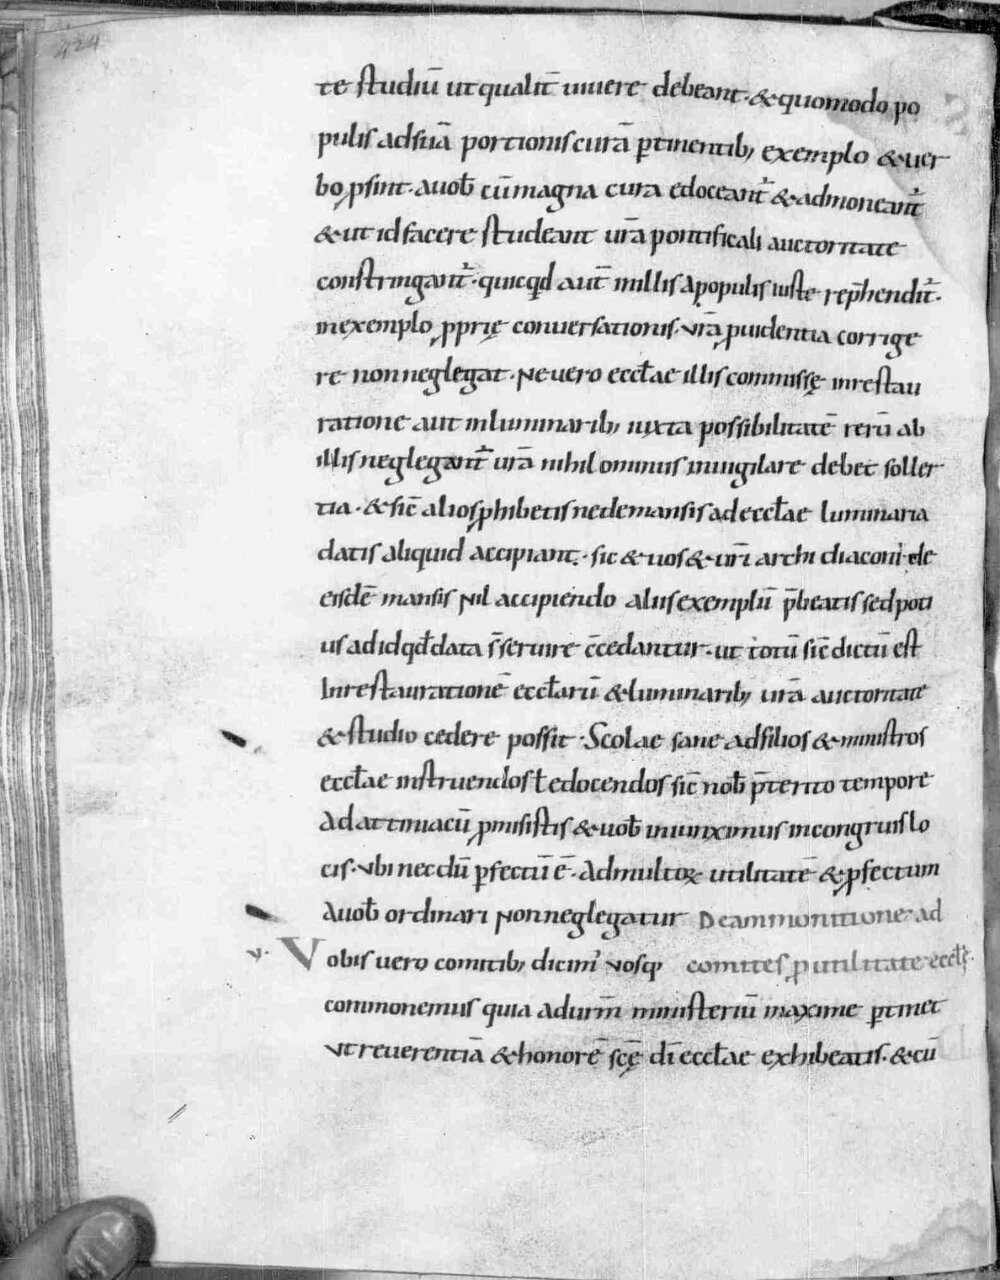 424
te studiū ut qualit̄ uiuere debeant. & quomodo po
pulis ad suā portionis curā ꝑtinentib; exemplo & uer
bo ꝓsint. a uob̄ cū magna cura edoceant̄ & admoneant̄
& ut id facere studeant ur̄a pontificali auctoritate
constringant̄. quicqd̄ aut̄ in illis a populis iuste rep̄hendit̄.
in exemplo ꝓprię conuersationis. ur̄a ꝓuidentia corrige
re non neglegat. Ne uero eccl̄ae illis commissę in restau
ratione aut in luminarib; iuxta possibilitatē rerū ab
illis neglegant̄ ur̄a nihilominus inuigilare debet soller
tia. & sic̄ alios ꝓhibetis ne de mansis ad eccl̄ae luminaria
datis aliquid accipiant. sic & uos & ur̄i archidiaconi de
eisdē mansis nil accipiendo aliis exemplū p̄beatis sed poti
us ad id qd̄ data s̄ seruire c̄cedantur. ut totū sic̄ dictū est
In restaurationē eccl̄arū & luminarib; ur̄a auctoritate
& studio cedere possit. Scolae sane ad filios & ministros
eccl̄ae instruendos ł edocendos sic̄ nob̄ p̄terito tempore
ad attiniacū ꝓmisistis & uob̄ iniunximus in congruis lo
cis. ubi necdū ꝑfectū ē. Ad multoꝝ utilitatē & ꝓfectum
a uob̄ ordinari non neglegatur De ammonitione ad
v. Vobis uero comitib; dicim' uosq; comites ꝓ utilitate eccl̄ę.
commonemus quia ad ur̄m ministeriū maxime ꝑtinet
ut reuerentiā & honorē scę̄ dī eccl̄ae exhibeatis. & cū